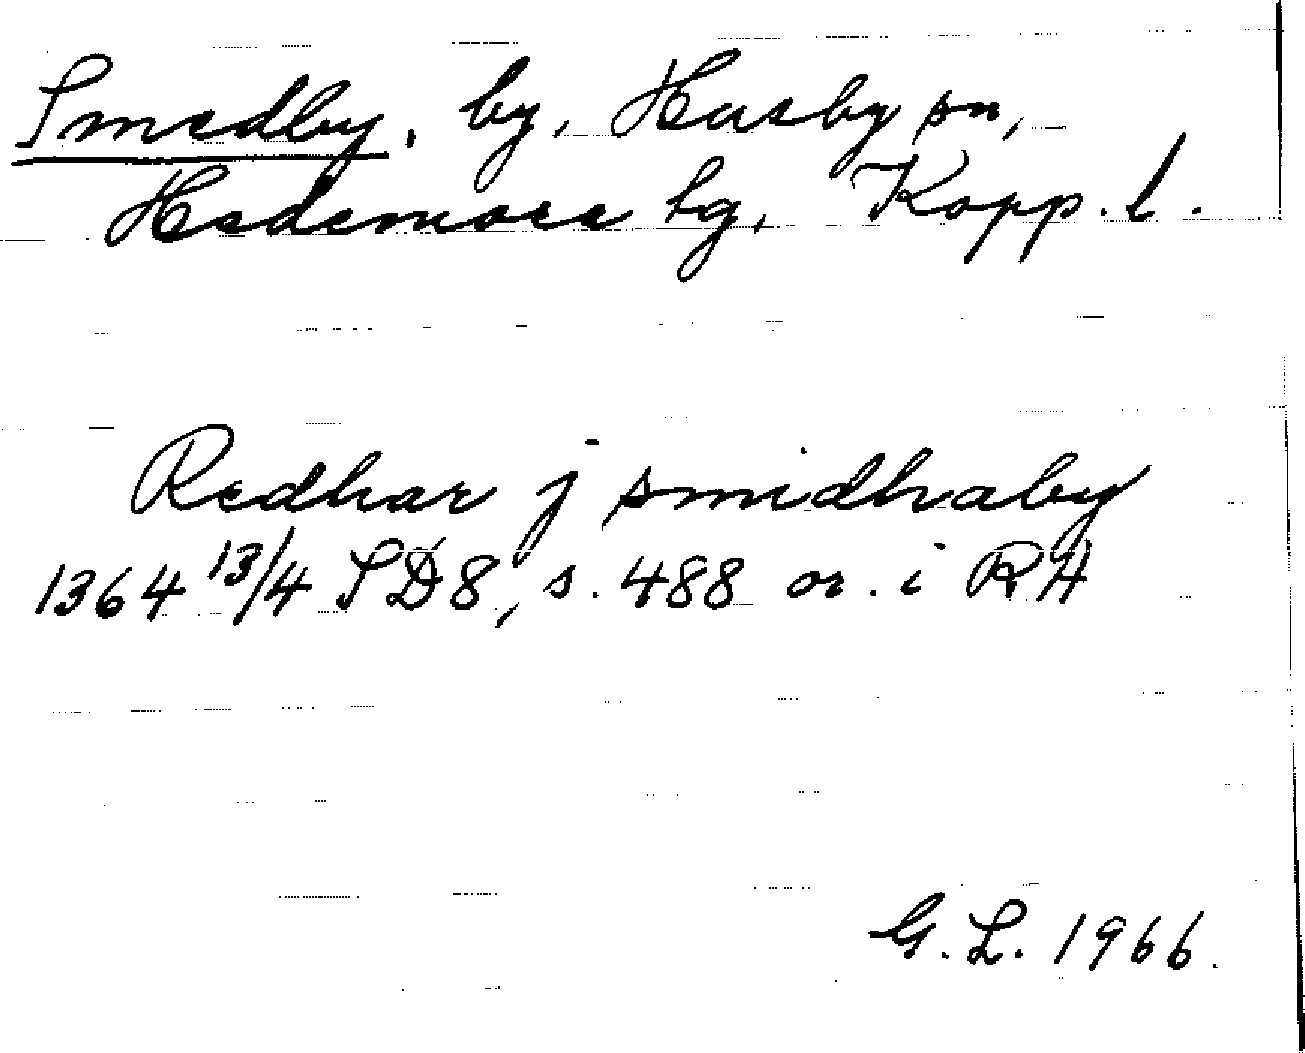 Smedby, by, Husby sn,
Hedemora tg, Kopp. l.
Redhar j smidhaby
1364 13/4 SD8, s. 488 or. i RA
G. L. 1966.